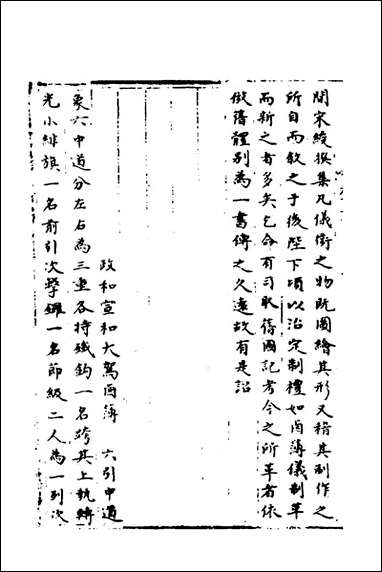 間宋綬撰集凡儀衛之物既圖繪其形又稽其制作之
所自而敘之于後陛下頃以治定制禮如鹵薄儀制革
而新之者多矣乞命有司取舊圖記考今之所革者依
倣舊體別為一書傳之久遠故有是詔
政和宣和大駕鹵薄　六引中道
象六中道分左右為三重各持鐵鈎一名跨其上執轉
光小緋旗一名前引次擊鑼一名節級二人為一列次